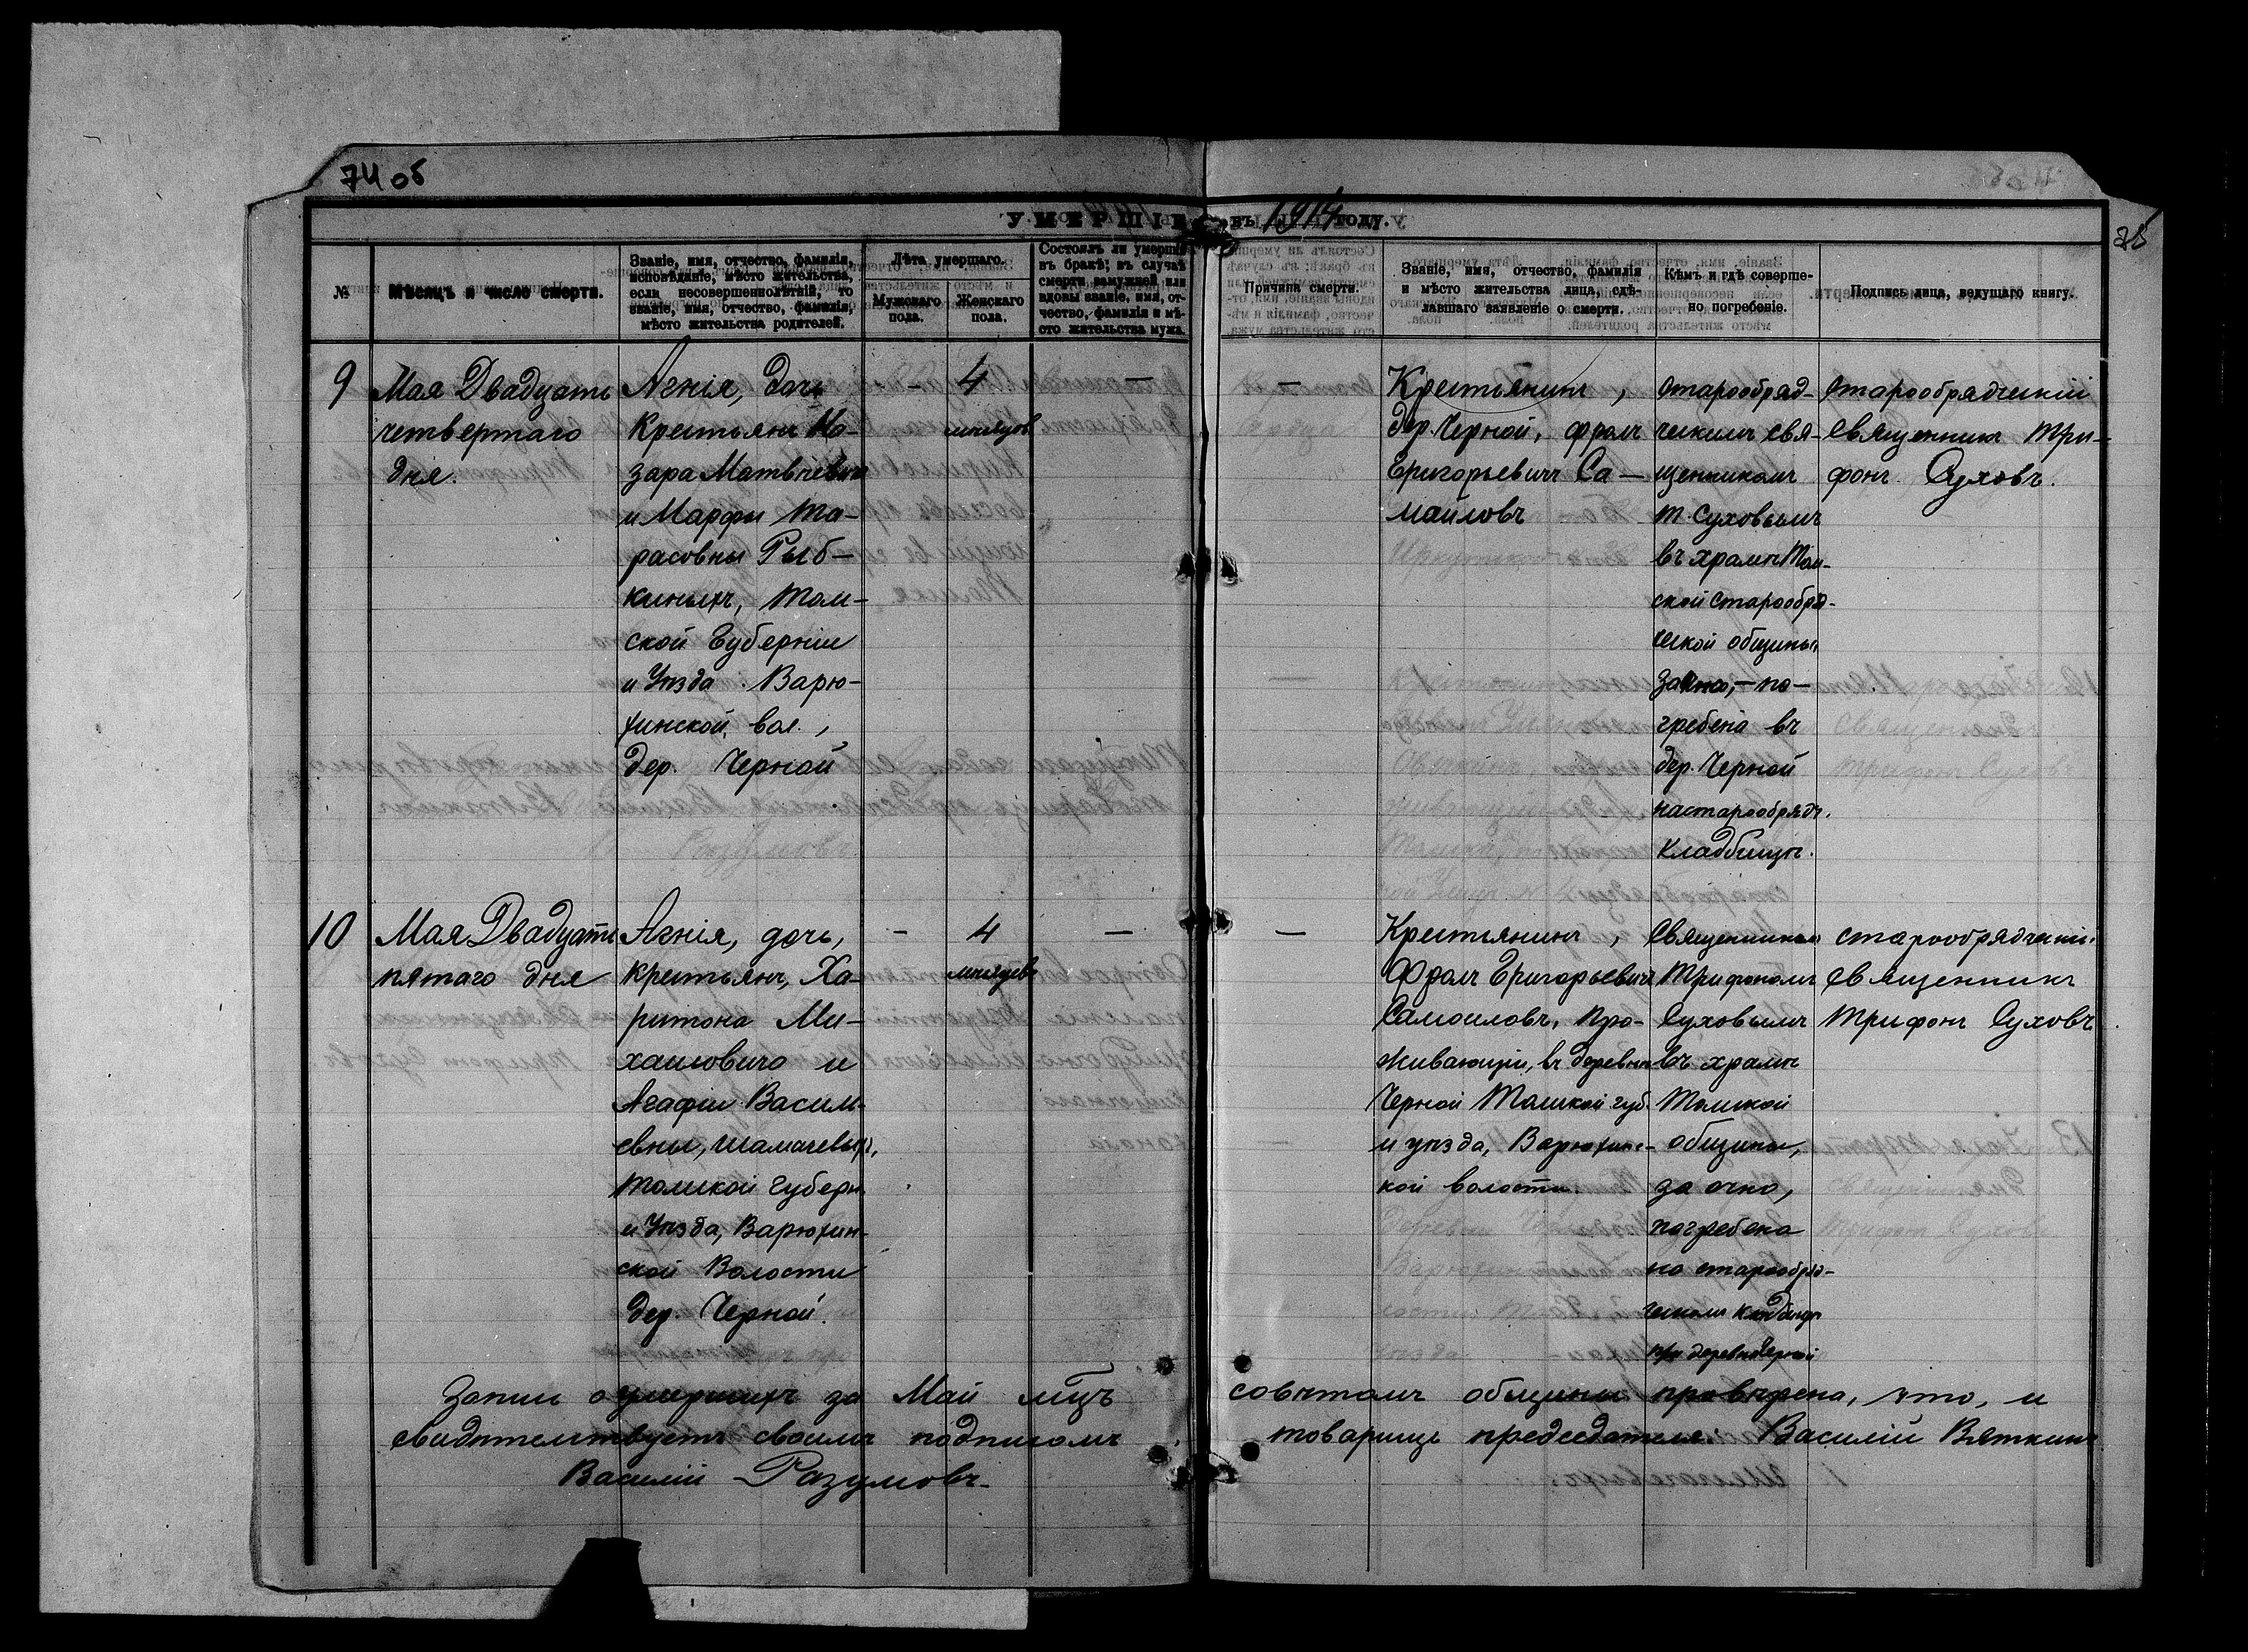 74 об
75
УМЕРШІЕ въ 1914 году.
№
Мѣсяцъ и число смерти.
Званіе, имя, отчество, фамилія,
исповѣданіе, мѣсто жительства,
если несовершеннолѣтній, то
званіе, имя, отчество, фамилія,
мѣсто жительства родителей.
Лѣта умершаго.
Мужскаго
пола.
Женскаго
пола.
Состоялъ ли умершій
въ бракѣ; въ случаѣ
смерти замужней или
вдовы званіе, имя, от-
чество, фамилія и мѣ-
сто жительства мужа.
Причина смерти.
Званіе, имя, отчество, фамилія
и мѣсто жительства лица, сдѣ-
лавшаго заявленіе о смерти.
Кѣмъ и гдѣ соверше-
но погребеніе.
Подпись лица, ведущаго книгу.
9
Мая Двадцать
четвертаго
дня.
Агнія, дочь
крестьянъ На-
зара Матвѣевича
и Марфы Та-
расовны Рыб-
киныхъ, Том-
ской Губерніи
и Уѣзда Варю-
хинской, вол.,
дер. Черной
-
4
мѣсяцов
—
—
Крестьянинъ,
дер. Черной, Фролъ
Григорьевичъ Са-
мойловъ
Старообряд-
ческимъ свя-
щенникомъ
Т. Суховымъ
въ храмѣ Том-
ской старообря-
ческой общины,
заочно,- по-
гребена въ
дер. Черной
на старообрядч.
кладбищѣ.
Старообрядческій
священникъ Три-
фонъ Суховъ.
10
Мая Двадцать
пятаго дня
Агнія, дочь,
крестьянъ, Ха-
ритона Ми-
хаиловича и
Агафіи Василь-
евны, Шамачевыхъ,
Томской губерн.
и Уѣзда, Варюхин-
ской Волости
дер. Черной.
-
4
мѣсяцевъ
—
—
Крестьянинъ,
Фролъ Григорьевичъ
Самоиловъ, про-
живающій, въ деревнѣ
Черной Томской губ.
и уѣзда, Варюхинс-
кой волости.
Священникомъ
Трифономъ
Суховымъ
въ храмѣ
Томской
общины,
за очно,
погребена
на старообряд-
ческомъ кладбищѣ
при деревнѣ Черной
старообрядческій
священникъ
Трифонъ Суховъ
Запись о умершихъ за Май мѣцъ совѣтомъ общины провѣрена, что, и
свидѣтельствуетъ своимъ подписомъ товарищъ председателя. Василій Вяткинъ
Василій Разумовъ.